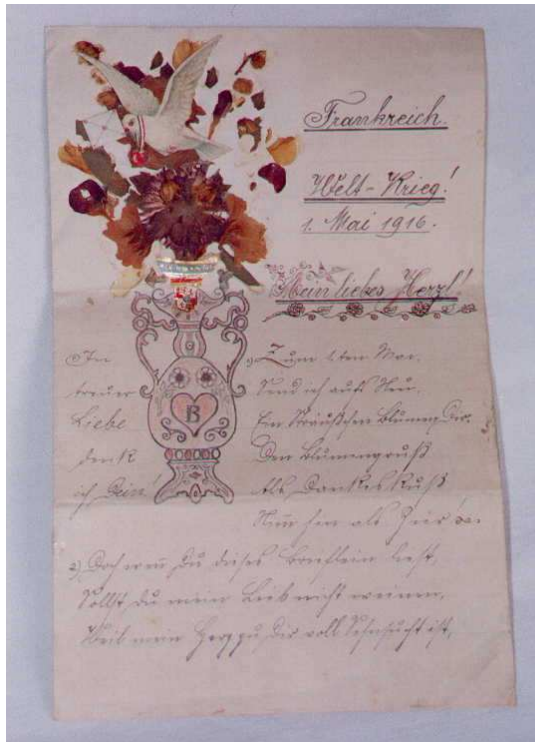 Frankreich.
Welt-Krieg!
1. Mai 1916.
Mein liebes Herzl!
In
treuer
Liebe
denk
ich Dein!
B
1) Zum 1ten Mai.
Send ich aufs Neu,
Ein Sträußchen Blumen Dir.
Den Blumengruß
Als Dankes Kuß
Nimm hin als Zier
2.) Doch wenn Du dieses Brieflein liest,
Sollst du mein Lieb nicht weinen,
Weil mein Herz zu Dir voll Sehnsucht ist,